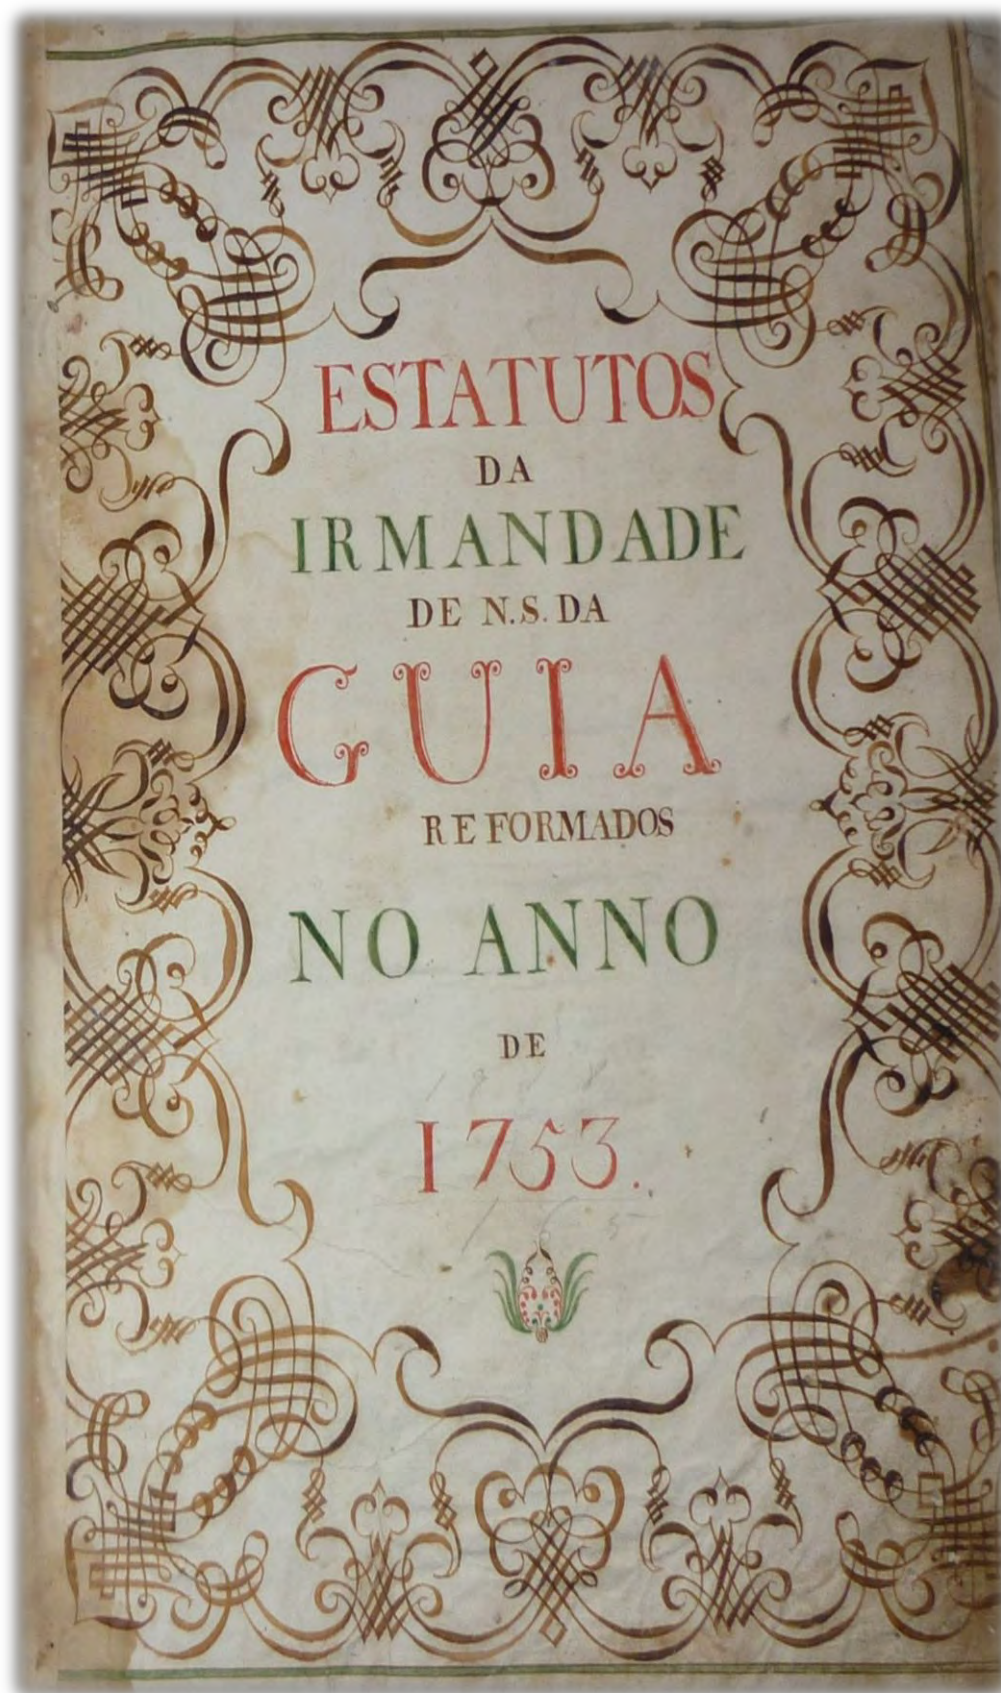 ESTATUTOS
DA
IRMANDADE
DE N.S. DA
GUIA
REFORMADOS
NO ANNO
DE
1753.